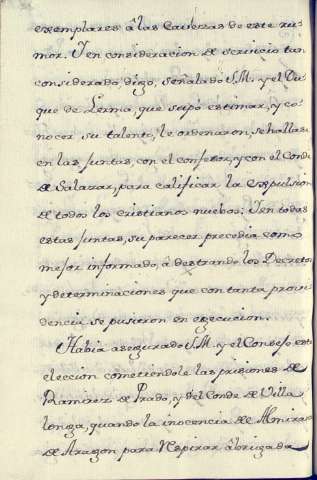 exemplares â las Cavezas de este ru-
mor. Y en consideracion de servicio tan
considerado, digo, señalado S.M. y el Du-
que de Lerma, que supo estimar, y co-
nocer su talento, le ordenaron, se hallase
en las Juntas, con el confesor, y con el Conde
de Salazar, para calificar la expulsion
de todos los cristianos nuebos. Y en todas
estas Juntas, su parecer precedia como
mejor informado, adestrando los Decretos
y determinaciones que con tanta provi-
dencia se pusieron en egecucion.
Habia asegurado S.M. y el Consejo esta
eleccion cometiendole las prisiones de
Ramirez de Prado, y del Conde de Villa
longa, quando la inocencia de Almiran
de Aragon para respirar abrigada